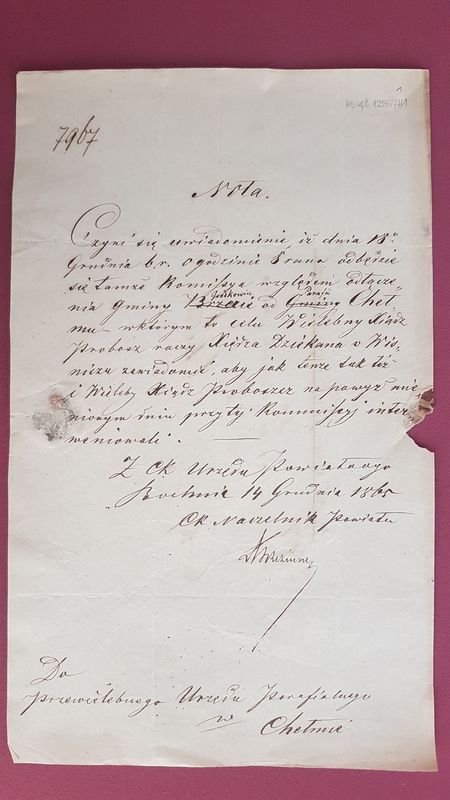 7967
Nota.
Czyni się uwiadomienie iż dnia 18º
Grudnia b.r. o godzinie 8 rano odbędzie
się tamże Komisya względem odłącze-
nia Gminy Brzezie Grodkowic od Gminy Parafii Cheł-
mu - w którym to celu Wielebny Xiądz
Probosz raczy Xiędza Dziekana w Wie-
niczu zawiadomić, aby jak tenże tak też
i Wieleb Xiądz Proboszcz na powyż mie-
nionym dniu przy tej Kommisyi inter-
weniowali.
Z CK. Urzędu Powiatowego
Bochnia 14 Grudnia 1865
CK Naczelnik Powiatu
Do
Przewielebnego Urzędu Parafialnego
w
Chełmie